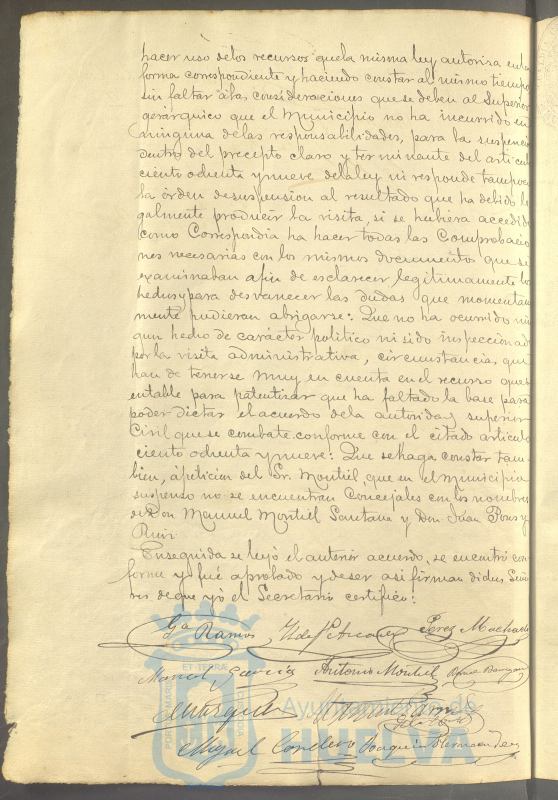 hacer uso de los recursos que la misma ley autoriza en la
forma correspondiente y haciendo constar al mismo tiempo
sin faltar á las consideraciones que se deben al Superior
gerárquico que el Municipio no ha incurrido en
ninguna de las responsabilidades, para la suspensión
dentro del precepto claro y terminante del artículo
ciento ochenta y nueve de la ley ni responde tampoco
la órden de suspension al resultado que ha debido le
galmente producir la visita, si se hubiera accedido
como Correspondia ha hacer todas las Comprobacio
nes necesarias con los mismos documentos que se
examinaban afin de esclarecer legitimamente los
hechos y para desvanecer las dudas que momentanea
mente pudieran abrigarse: Que no ha ocurrido nin
gun hecho de carácter politico ni sido inspeccionado
por la visita administrativa, circunstancias que
han de tenerse muy en cuenta en el recurso que se
entable para patentizar que ha faltado la base para
poder dictar el acuerdo de la autoridad superior
Civil que se combate conforme con el citado articulo
ciento ochenta y nueve: Que se haga constar tam
bien, á peticion del Sr. Montiel, que en el Municipio
suspenso no se encuentran Concejales con los nombres
de Don Manuel Montiel Santana y Don Juan Pons y
Ruiz.
Enseguida se leyó el anterior acuerdo, se encontró con
forme y fué aprobado y de ser asi firman dichos Seño
res de que yó el Secretario certifico:
Ramos Perez Machado
Manuel Garcia Antonio Montiel Rafael
E Marquez
Miguel Cordero Joaquin
PORTUS MARIS ET TERRÆ
Ayuntamiento de
HUELVA